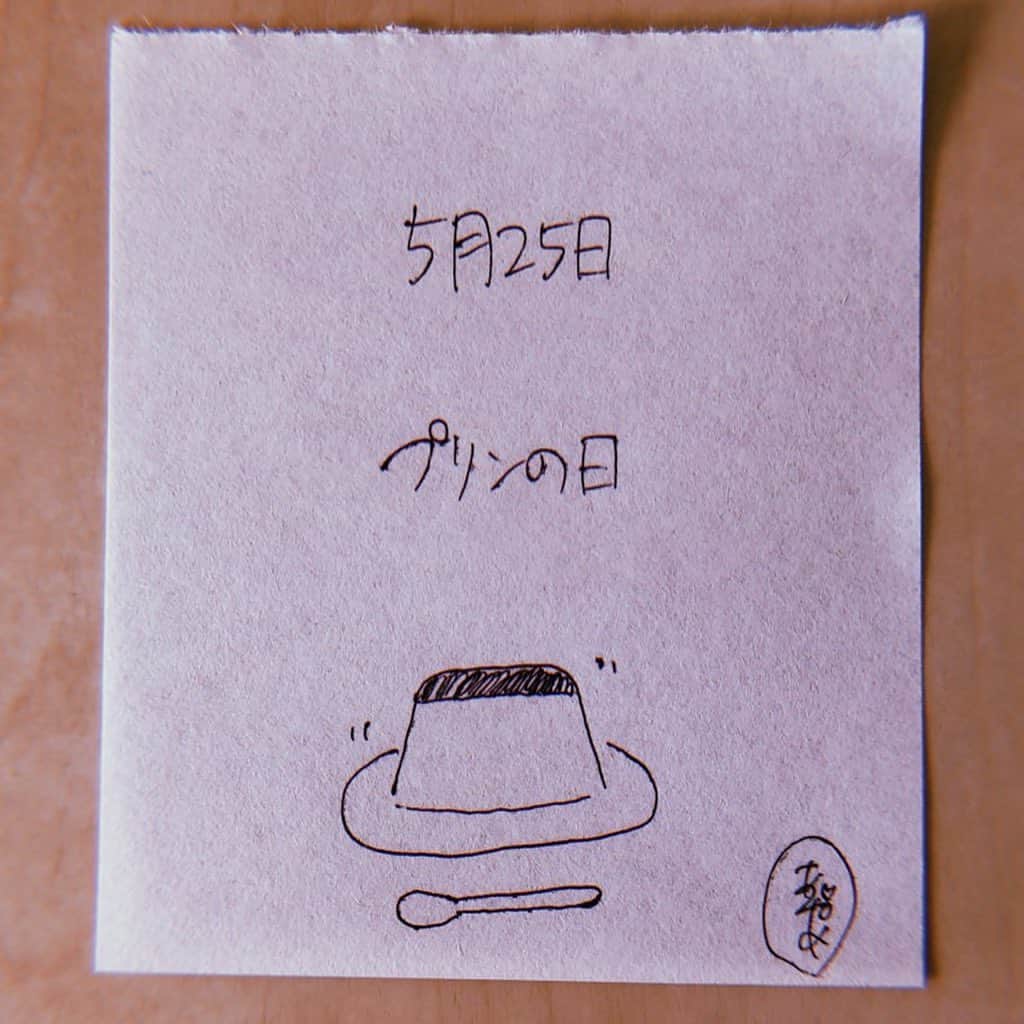 5月25日
プリンの日